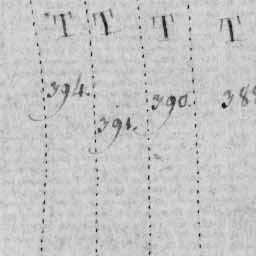 T T T T
394. 391. 390. 388